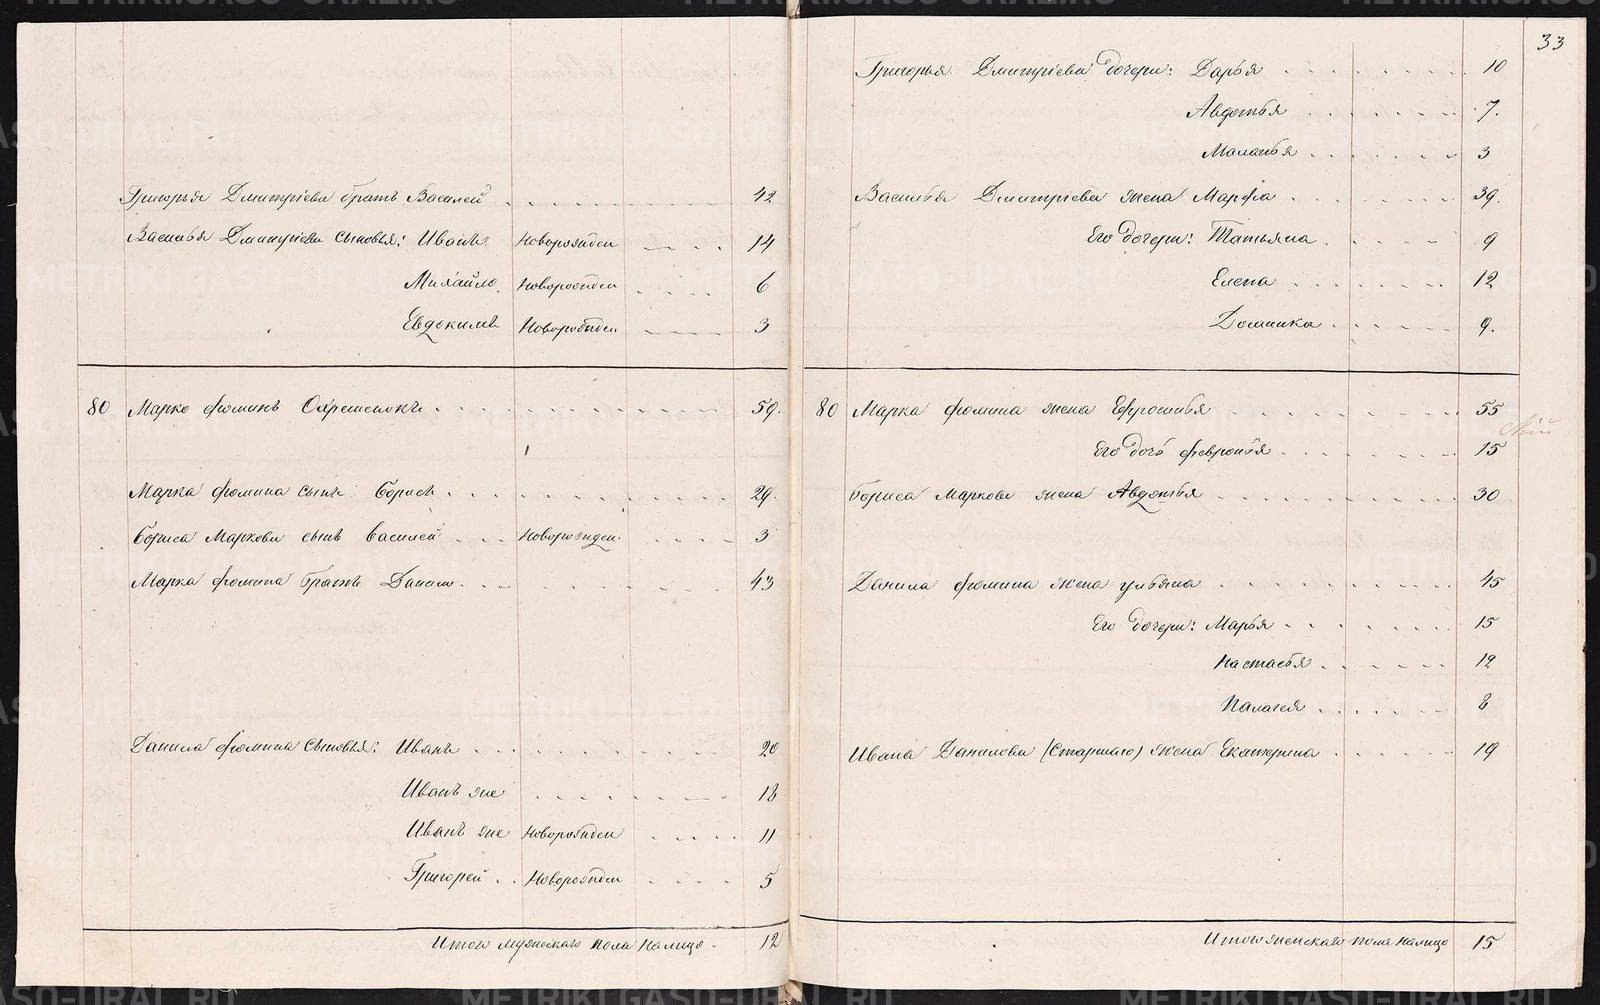 Григорья Дмитріева братъ Василей 42
Василья Дмитріева сыновья: Иванъ Новорожден 14
Михайло Новорожден 6
Евдокимъ Новорожден 3
80 Марко Фоминъ 59.
Марка Фомина сынъ Борисъ 29.
Бориса Маркова сынъ Василей Новорожден. 3
Марка Фомина братъ Данило 43
Данила Фомина сыновья: Иванъ 20
Иванъ же 18
Иванъ же Новорожден 11
Григорей Новорожден 5
Итого мужескаго пола налицо. 12
33
Григорья Дмитріева дочери: Дарья 10
Авдотья 7.
Маланья 3
Василья Дмитріева жена Марфа 39.
Его дочери: Татьяна 9
Елена 12
Домника 9.
80 Марка Фомина жена Ефросинья 55
Его дочь Февронья 15
Бориса Маркова жена Авдотья 30
Данила Фомина жена Ульяна 45
Его дочери: Марья 15
Настасья 12
Палагея 8
Ивана Данилова (Старшаго) жена Екатерина 19
Итого женскаго пола налицо 15
METRIKI.GASO-URAL.RU